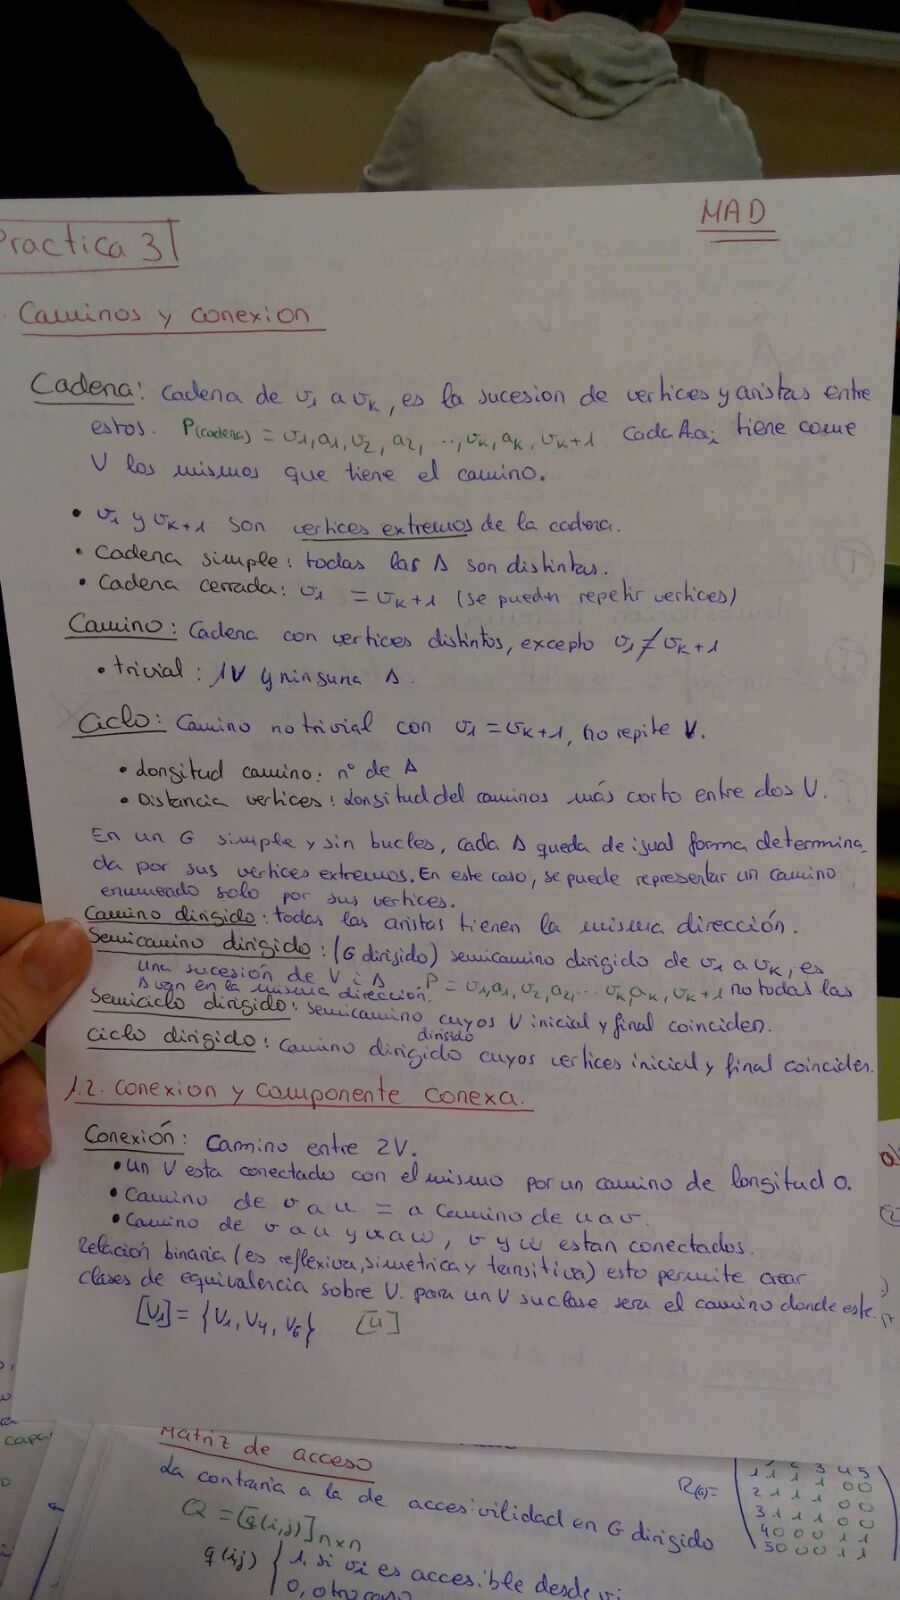 Practica 3
MAD
Caminos y conexion
Cadena: cadena de v1 a vk, es la sucesion de vertices y aristas entre
estos. P(cadena) = v1, a1, v2, a2, ..., vk, ak, vk+1 cada A ai tiene como
V los mismos que tiene el camino.
• v1 y vk+1 son vertices extremos de la cadena.
• Cadena simple: todas las A son distintas.
• Cadena cerrada: v1 = vk+1 (se pueden repetir vertices)
Camino: Cadena con vertices distintos, excepto v1 ≠ vk+1
• trivial: 1V y ninguna A.
Ciclo: Camino no trivial con v1 = vk+1, no repite V.
• Longitud camino: nº de A
• Distancia vertices: Longitud del caminos más corto entre dos V.
En un G simple y sin bucles, cada A queda de igual forma determina
da por sus vertices extremos. En este caso, se puede representar un camino
enumeado solo por sus vertices.
Camino dirigido: todas las aristas tienen la misma dirección.
Semicamino dirigido: (G dirigido) semicamino dirigido de v1 a vk, es
una sucesión de V i A P = v1, a1, v2, a2, ... vk, ak, vk+1 no todas las
A van en la misma dirección.
Semiciclo dirigido: semicamino cuyos V inicial y final coinciden.
dirigido
Ciclo dirigido: Camino dirigido cuyos vertices inicial y final coinciden.
1.2. Conexion y componente conexa.
Conexión: Camino entre 2V.
• Un V esta conectado con el mismo por un camino de longitud 0.
• Camino de v a u = a camino de u a v.
• Camino de v a u y x a w, v y w estan conectados.
Relación binaria (es reflexiva, simetrica y transitiva) esto permite crear
clases de equivalencia sobre V. para un V su clase sera el camino donde este.
[V1] = {V1, V4, V6} [u]
Matriz de acceso
La contraria a la de accesivilidad en G dirigido
Q = [q(i,j)] n×n
q(i,j) { 1, si vi es accesible desde vj
0, otro caso
R(G) =
1 2 3 4 5
1 1 1 1 0 0
2 1 1 1 0 0
3 1 1 1 0 0
4 0 0 0 1 1
5 0 0 0 1 1